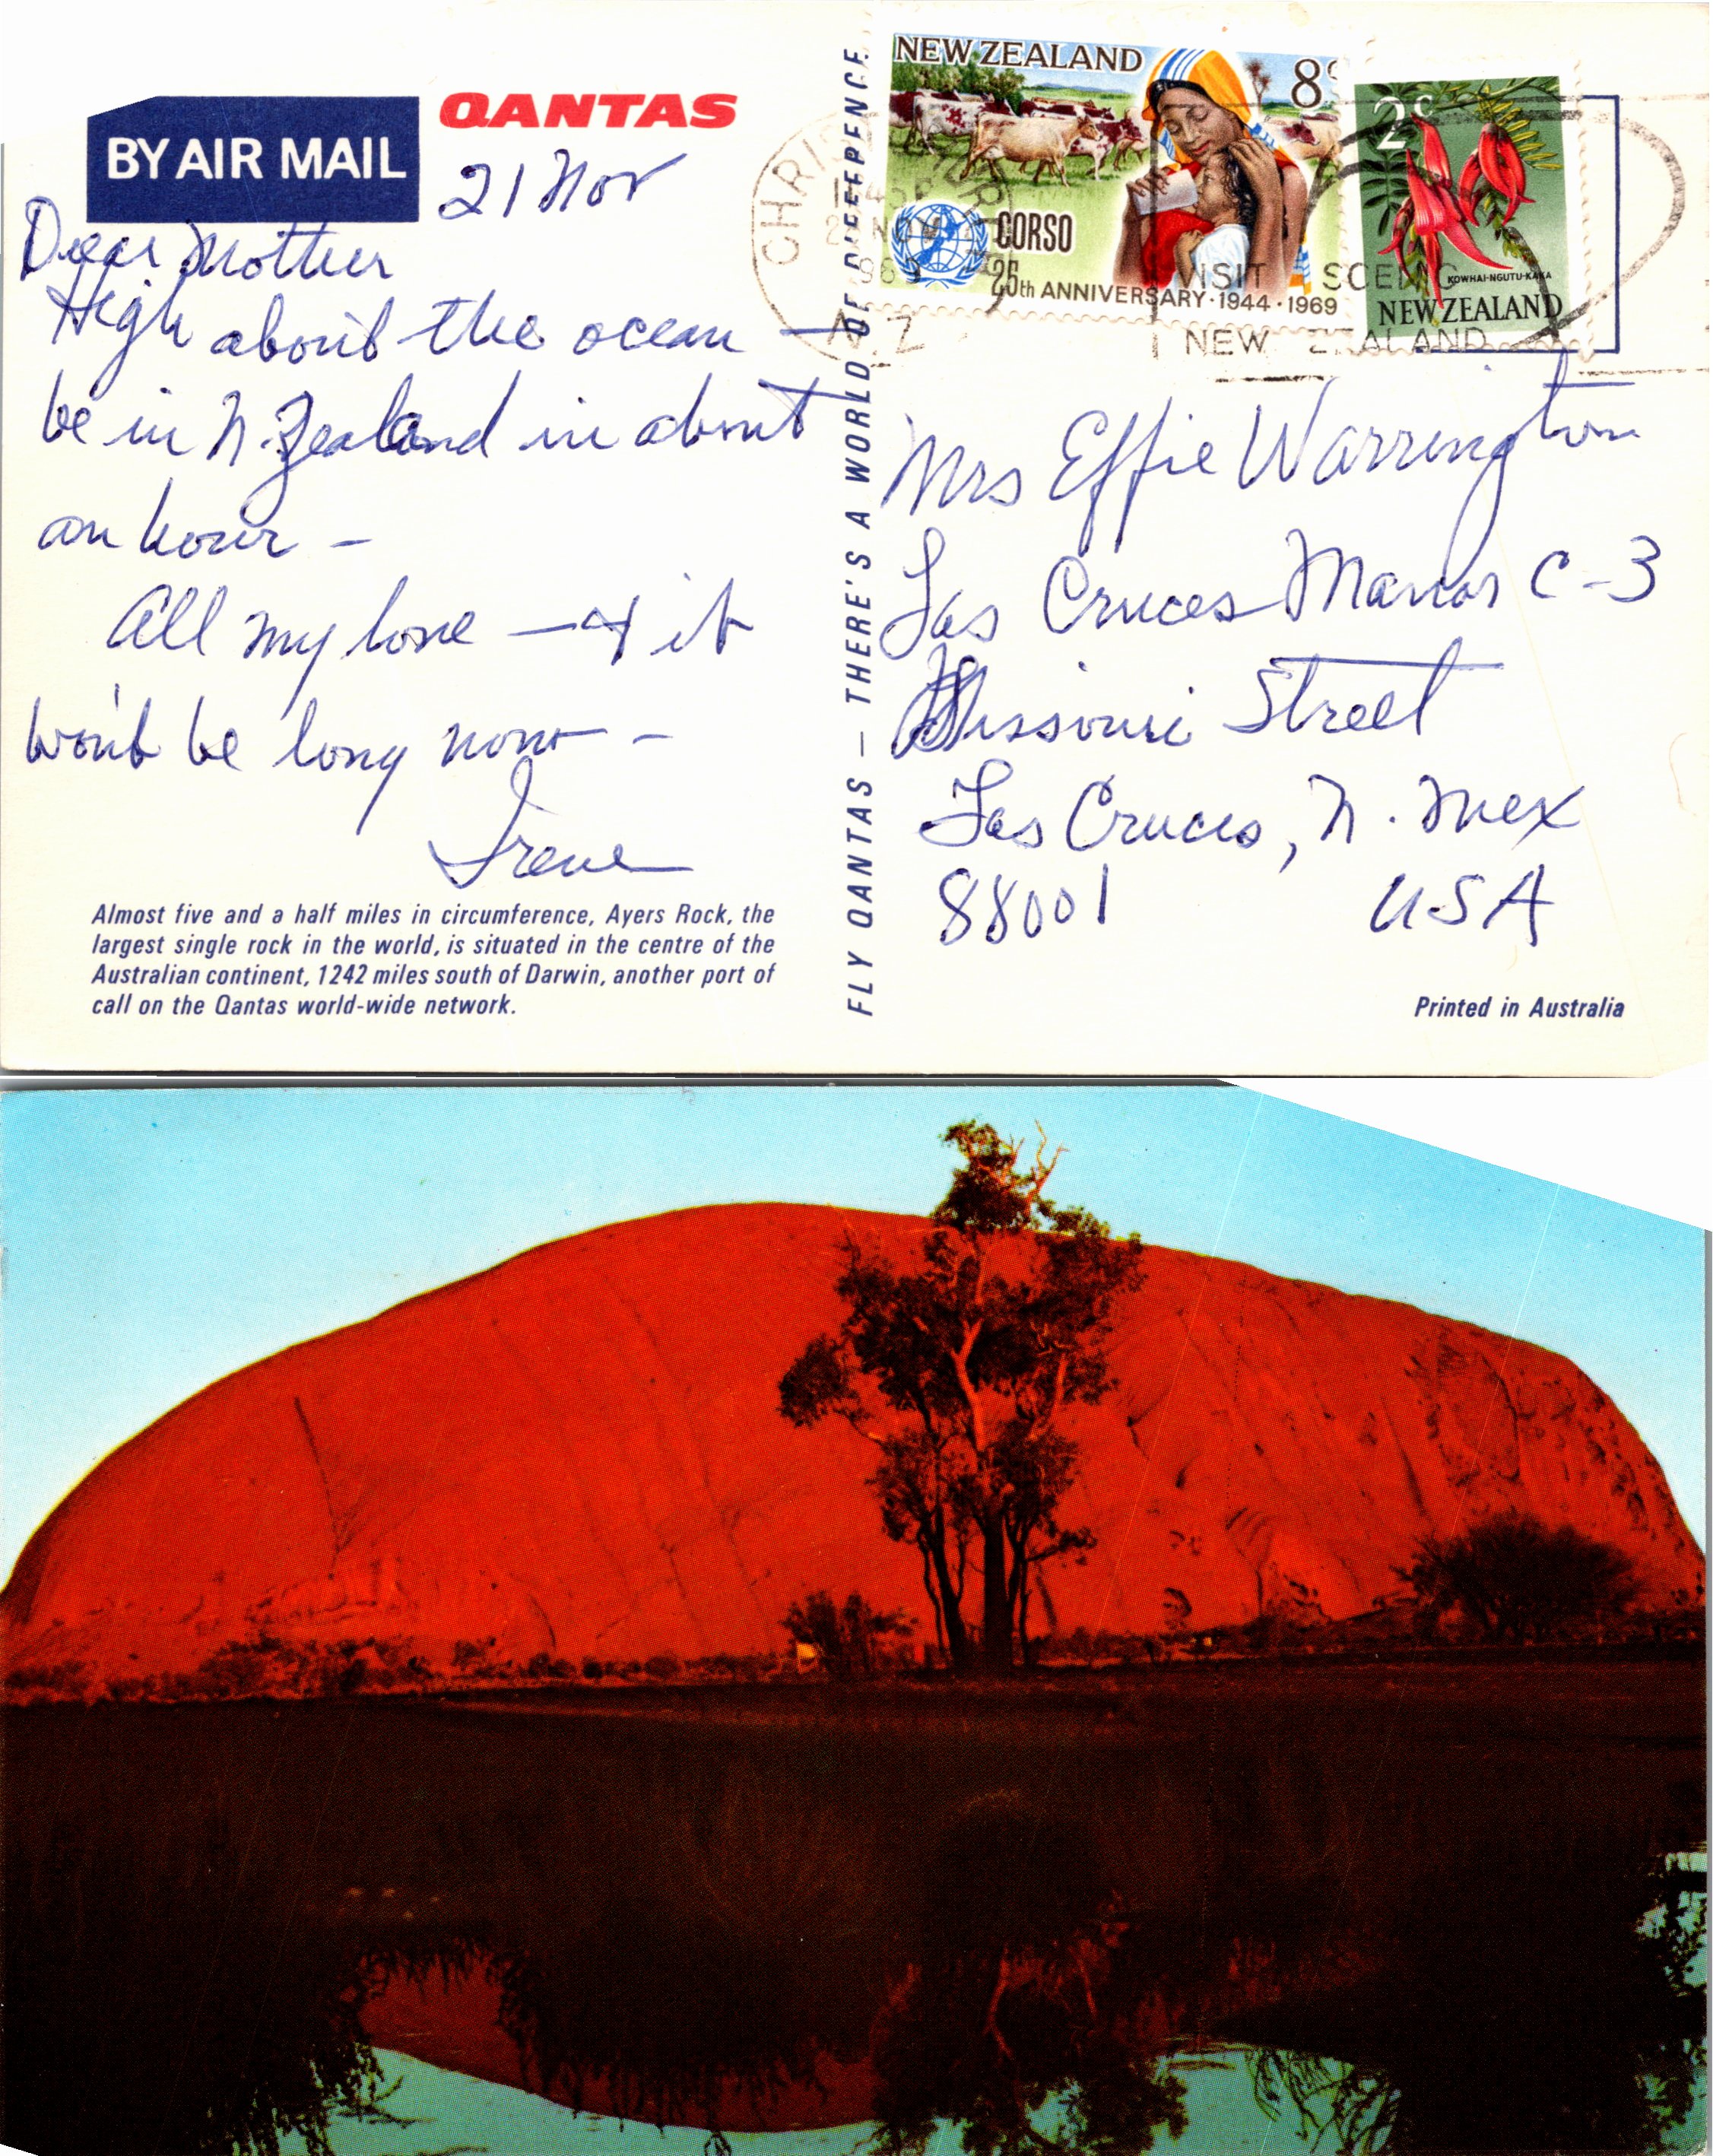 BY AIR MAIL
QANTAS
21 Nov
Dear Mother
High about the ocean —
be in N. Zealand in about
an hour —
All my love — & it
won't be long now —
Irene
Almost five and a half miles in circumference, Ayers Rock, the
largest single rock in the world, is situated in the centre of the
Australian continent, 1242 miles south of Darwin, another port of
call on the Qantas world-wide network.
FLY QANTAS — THERE'S A WORLD OF DIFFERENCE
NEW ZEALAND
8c
CORSO
25th ANNIVERSARY · 1944 · 1969
2c
KOWHAI-NGUTU-KAKA
NEW ZEALAND
NOV
N.Z.
VISIT SCENIC
NEW ZEALAND
Mrs Effie Warrington
Las Cruces Manor C-3
Missouri Street
Las Cruces, N. Mex
88001 USA
Printed in Australia